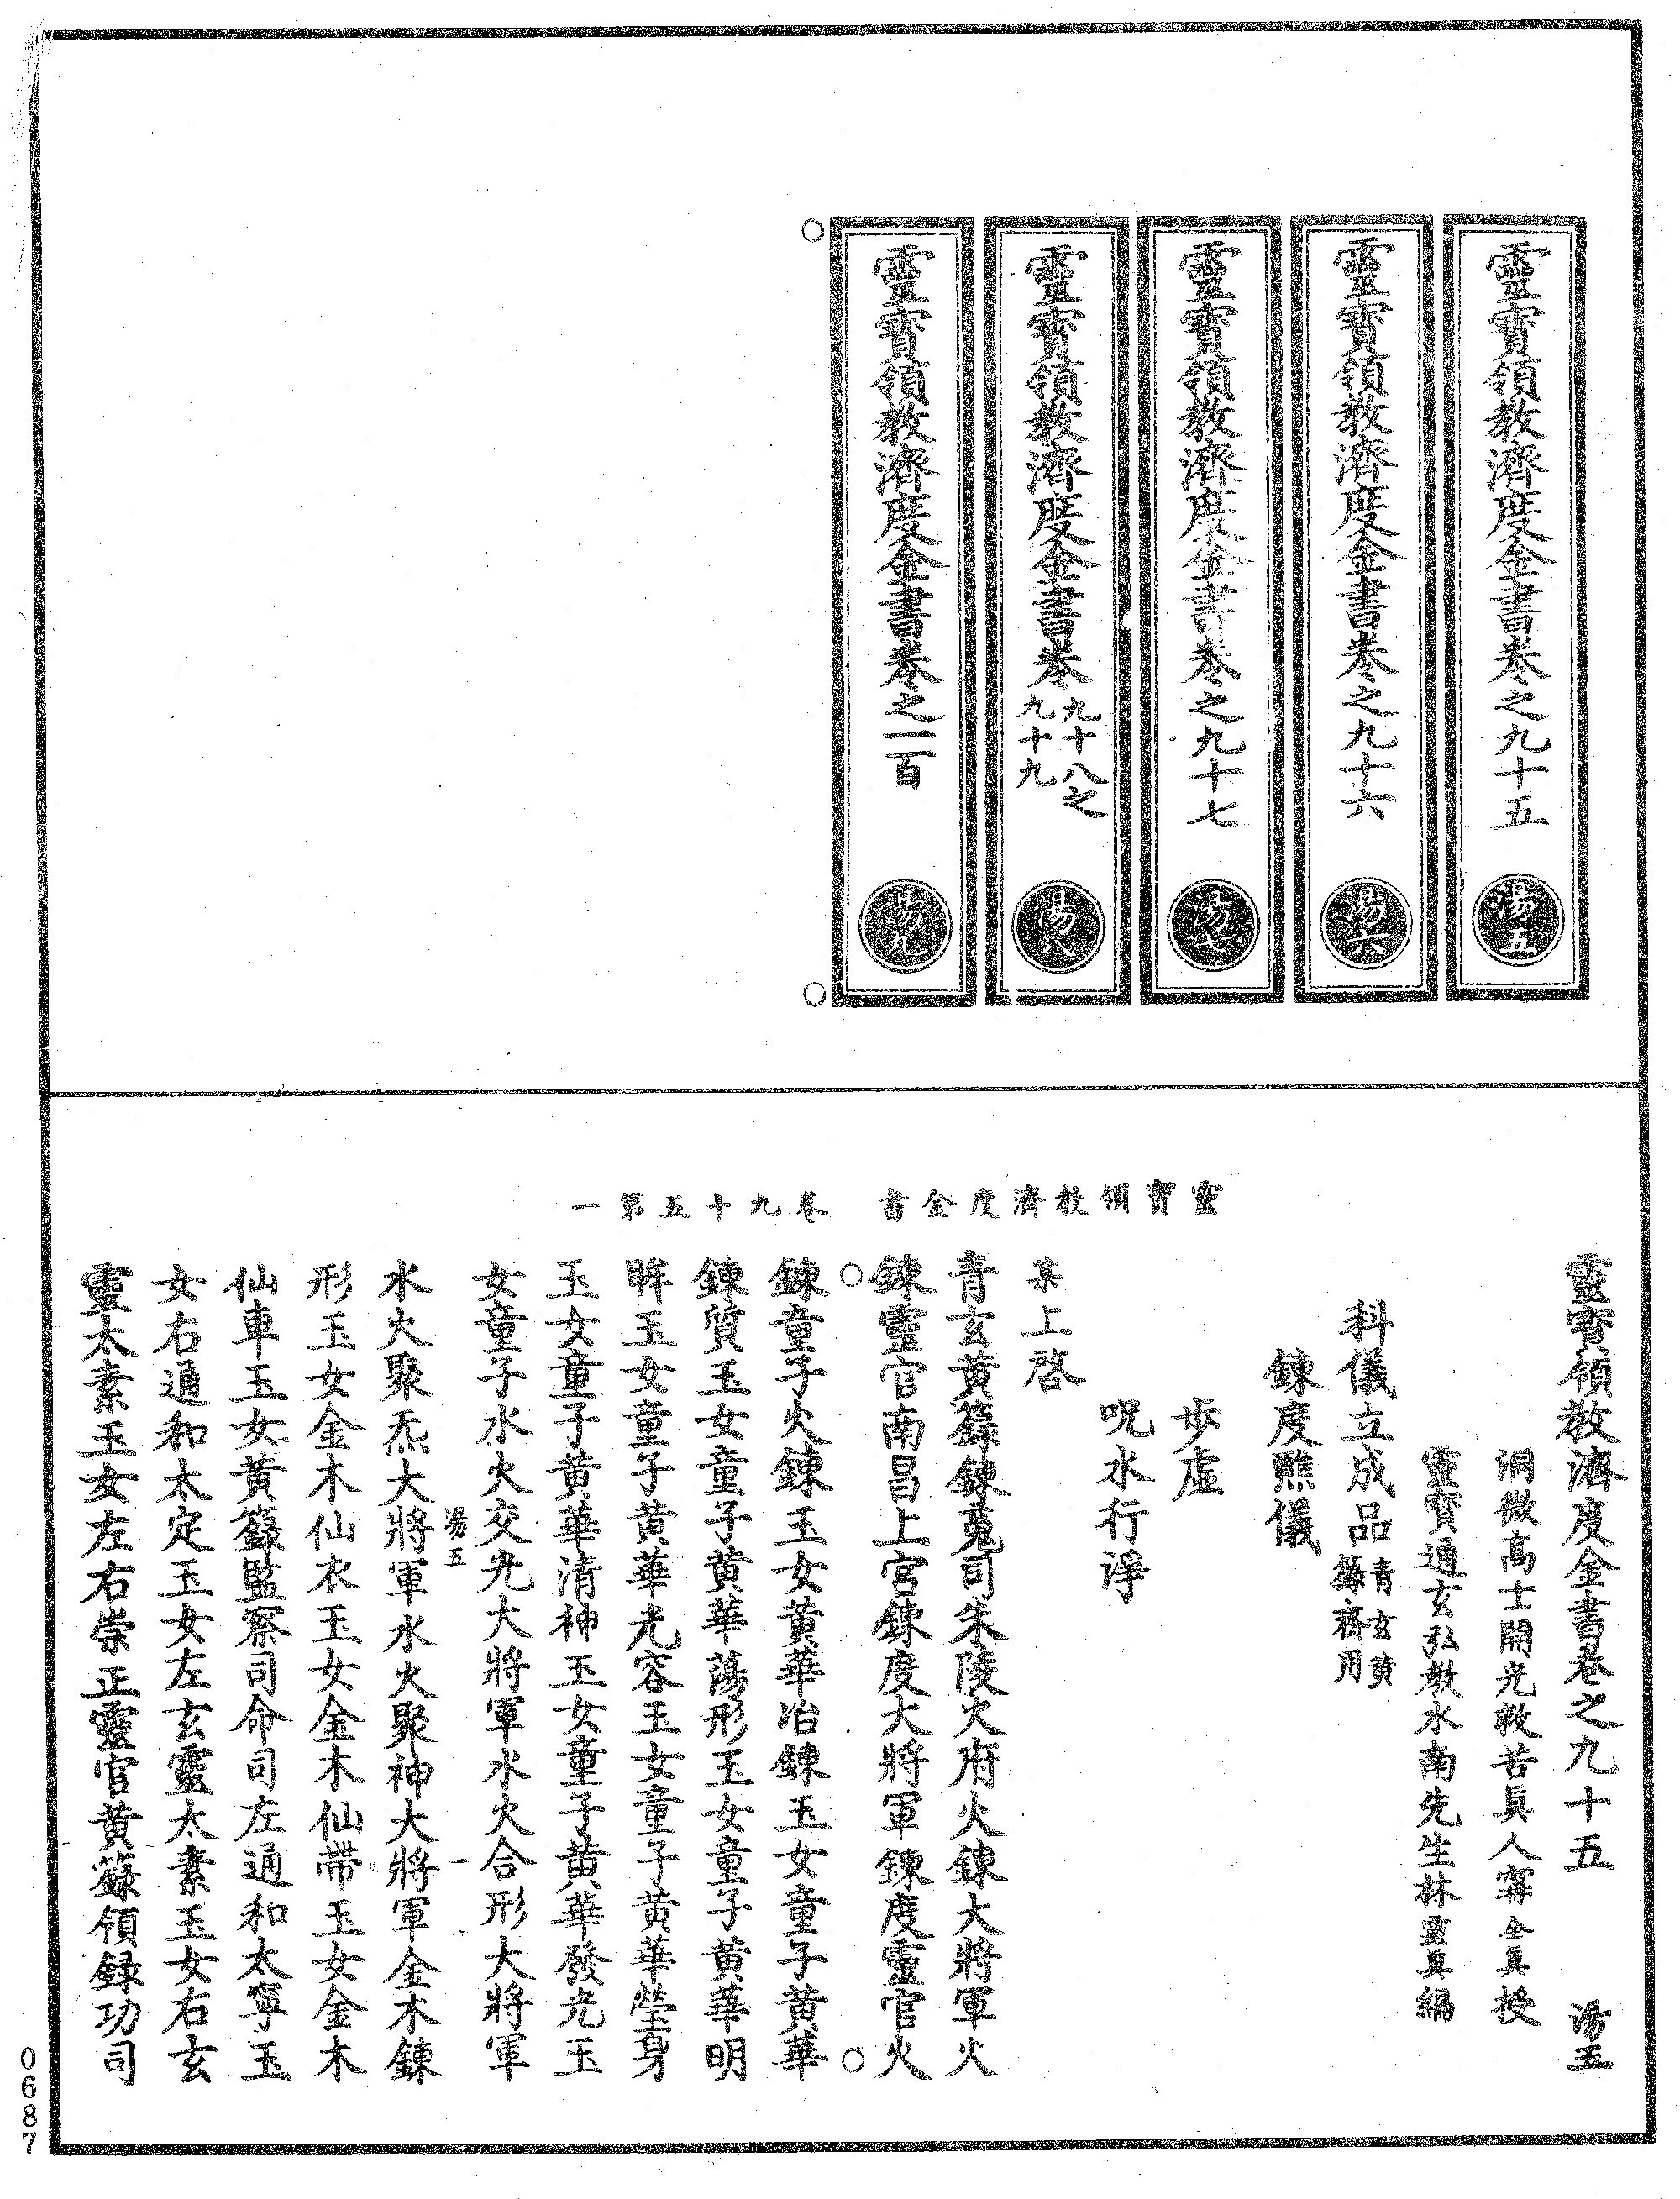 靈寶領教濟度金書卷之九十五
湯五
靈寶領教濟度金書卷之九十六
湯六
靈寶領教濟度金書卷之九十七
湯七
靈寶領教濟度金書卷九十八之九十九
湯八
靈寶領教濟度金書卷之一百
湯九
靈寶領教濟度金書 卷九十五第一
靈寶領教濟度金書卷之九十五 湯五
洞微高士開光救苦真人寗全真授
靈寶通玄弘教水南先生林靈真編
科儀立成品青玄黃籙齋用
鍊度醮儀
步虛
呪水行淨
某上啓
青玄黃籙鍊䰟司朱陵火府火鍊大將軍火
鍊靈官南昌上宮鍊度大將軍鍊度靈官火
鍊童子火鍊玉女黃華冶鍊玉女童子黃華
鍊質玉女童子黃華蕩形玉女童子黃華明
眸玉女童子黃華光容玉女童子黃華瑩身
玉女童子黃華清神玉女童子黃華發光玉
女童子水火交光大將軍水火合形大將軍
湯五 一
水火聚炁大將軍水火聚神大將軍金木鍊
形玉女金木仙衣玉女金木仙帶玉女金木
仙車玉女黃籙監察司命司左通和太寧玉
女右通和太定玉女左玄靈太素玉女右玄
靈太素玉女左右崇正靈官黃籙領錄功司
0687